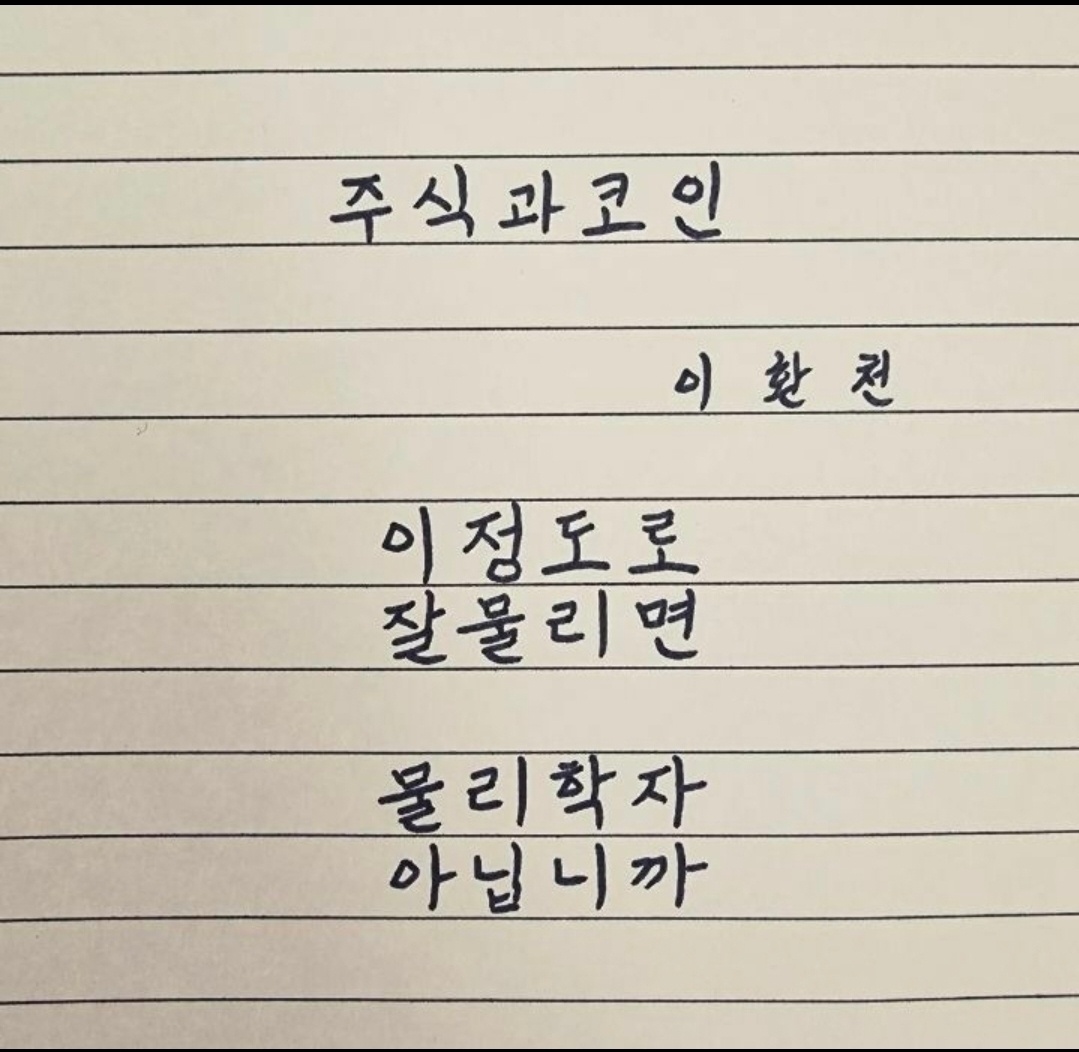 주식과코인
이환천
이정도로
잘물리면
물리학자
아닙니까